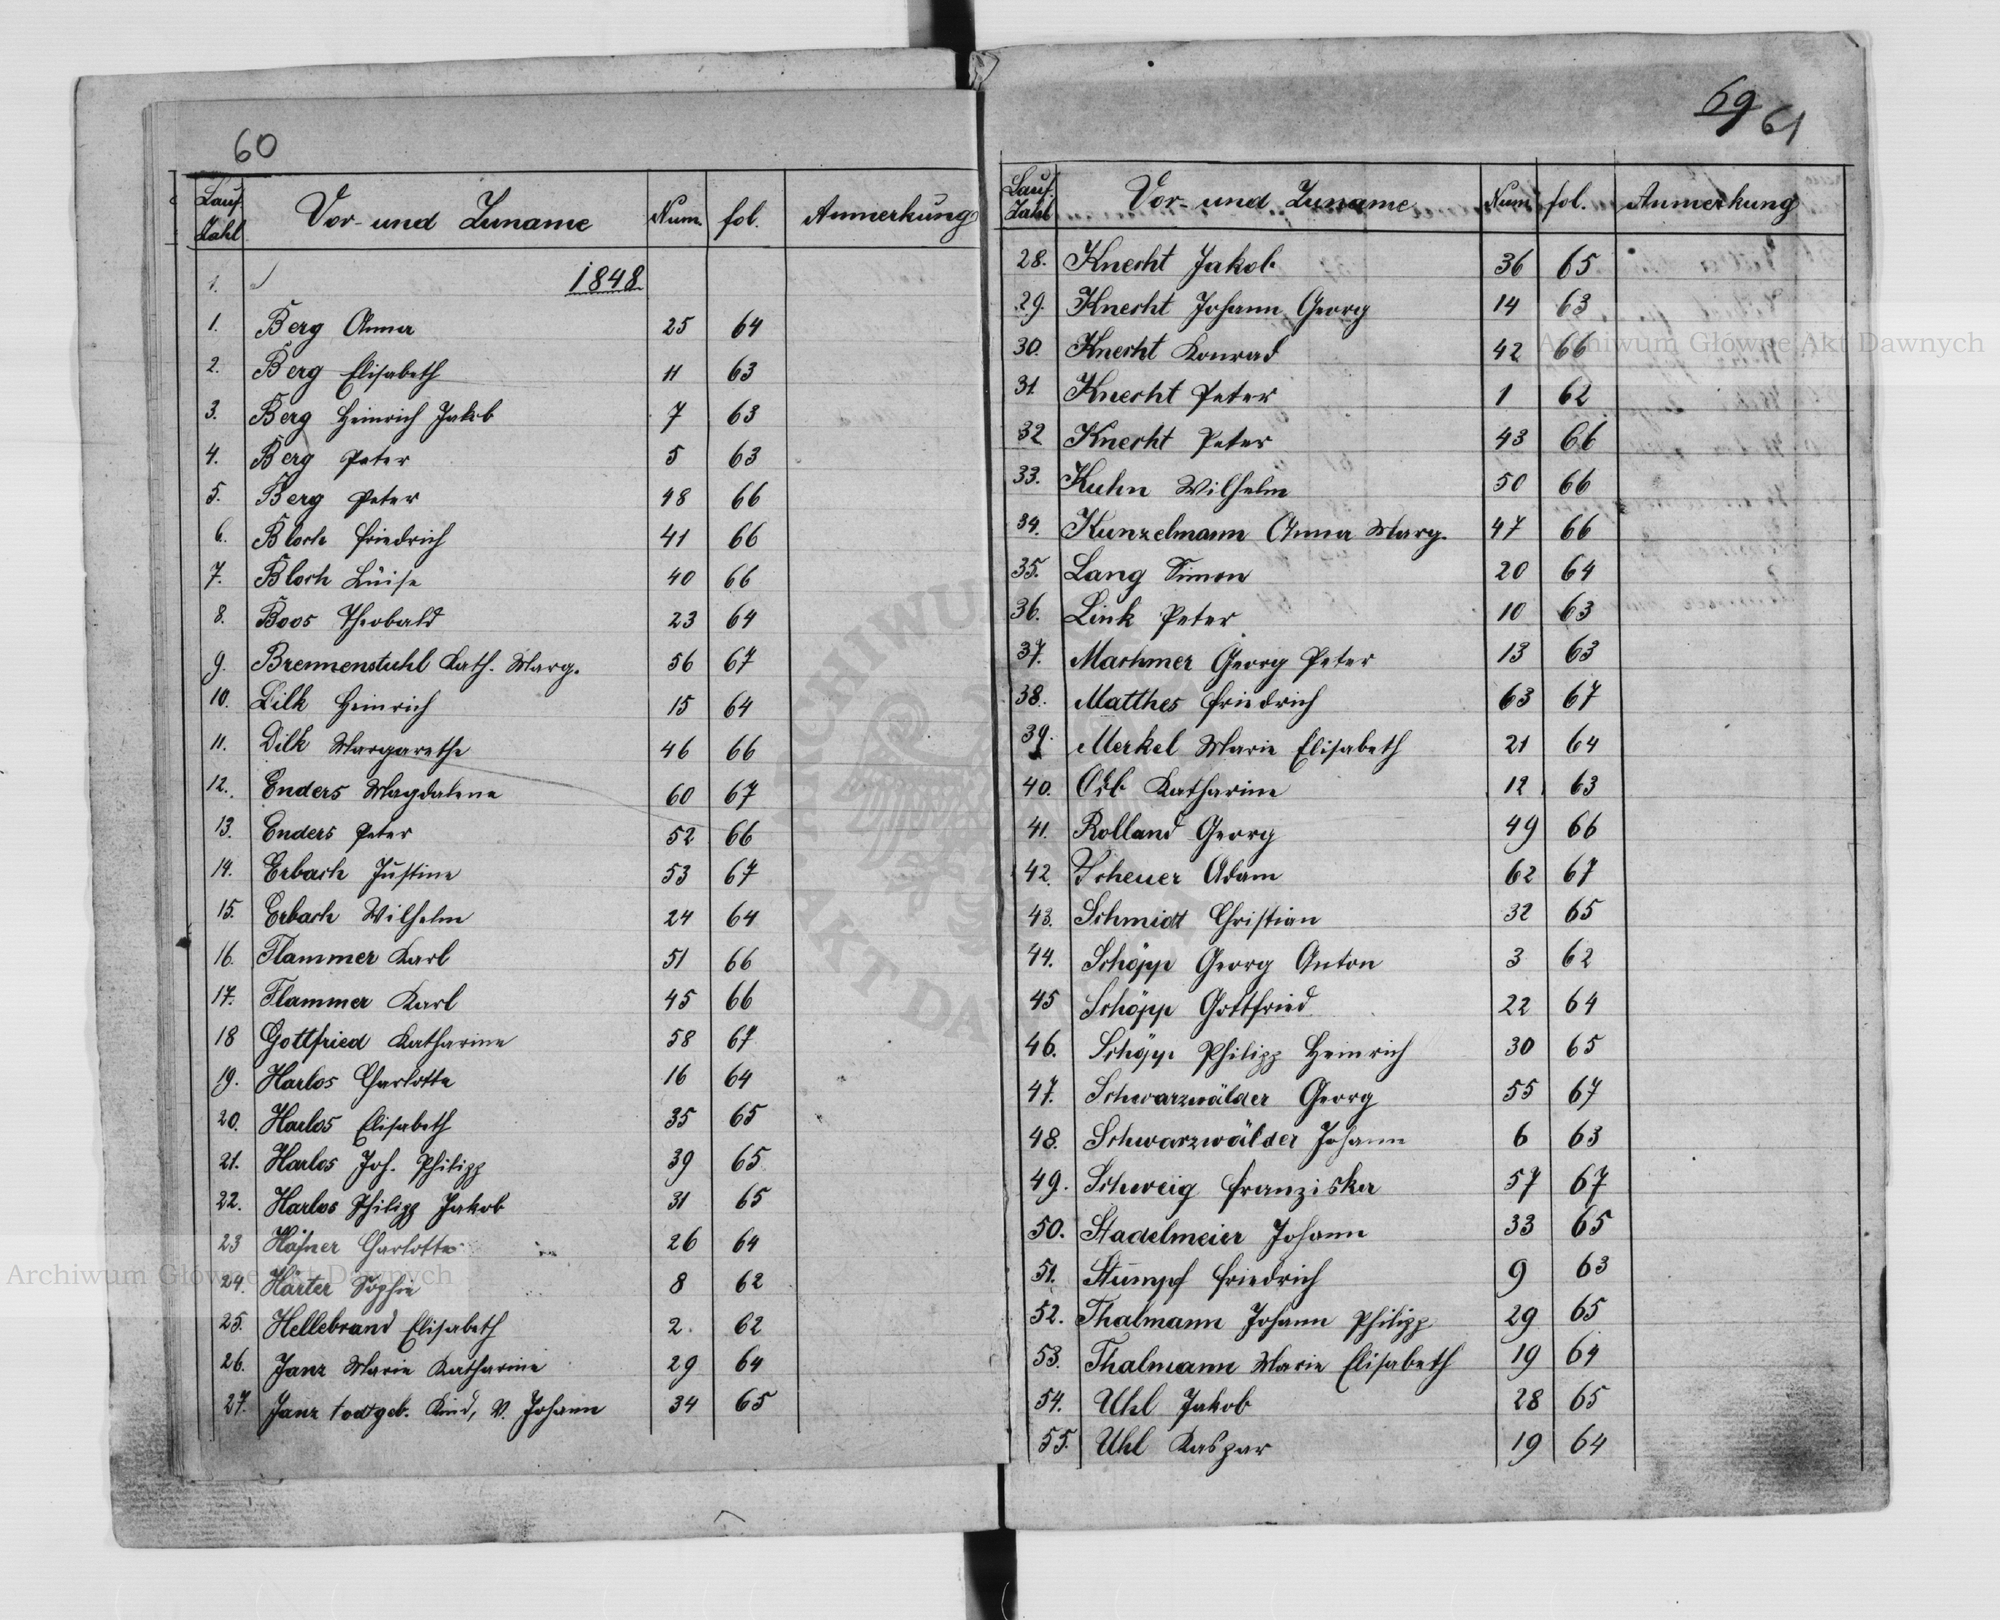 60
Lauf. Zahl Vor- und Zuname Num. fol. Anmerkung
1. 1848.
1. Berg Anna 25 64
2. Berg Elisabeth 11 63
3. Berg Heinrich Jakob 7 63
4. Berg Peter 5 63
5. Berg Peter 48 66
6. Bloch Friedrich 41 66
7. Bloch Luise 40 66
8. Boos Theobald 23 64
9. Brennenstuhl Kath. Marg. 56 67
10. Dilk Heinrich 15 64
11. Dilk Margarethe 46 66
12. Enders Magdalena 60 67
13. Enders Peter 52 66
14. Erbach Justine 53 67
15. Erbach Wilhelm 24 64
16. Flammer Karl 51 66
17. Flammer Karl 45 66
18 Gottfried Katharine 58 67
19. Harlos Charlotte 16 64
20. Harlos Elisabeth 35 65
21. Harlos Joh. Philipp 39 65
22. Harlos Philipp Jakob 31 65
23 Häfner Charlotte 26 64
24. Härter Sophie 8 62
25. Hellebrand Elisabeth 2. 62
26. Janz Marie Katharine 29 64
27. Janz todtgeb. Kind, v. Johann 34 65
69 61
Lauf. Zahl Vor- und Zuname Num fol. Anmerkung
28. Knecht Jakob 36 65
29. Knecht Johann Georg 14 63
30. Knecht Konrad 42 66
31. Knecht Peter 1 62
32 Knecht Peter 43 66
33. Kuhn Wilhelm 50 66
34. Kunzelmann Anna Marg. 47 66
35. Lang Simon 20 64
36. Link Peter 10 63
37. Machmer Georg Peter 13 63
38. Matthes Friedrich 63 67
39. Merkel Marie Elisabeth 21 64
40. Orb Katharine 12 63
41. Rolland Georg 49 66
42. Scheuer Adam 62 67
43. Schmidt Christian 32 65
44. Schöpp Georg Anton 3 62
45 Schöpp Gottfried 22 64
46. Schöpp Philipp Heinrich 30 65
47. Schwarzwälder Georg 55 67
48. Schwarzwälder Johann 6 63
49. Schweig Franziska 57 67
50. Stadelmeier Johann 33 65
51. Stumpf Friedrich 9 63
52. Thalmann Johann Philipp 29 65
53. Thalmann Marie Elisabeth 19 64
54. Uhl Jakob 28 65
55. Uhl Kaspar 19 64
Archiwum Główne Akt Dawnych
Archiwum Główne Akt Dawnych